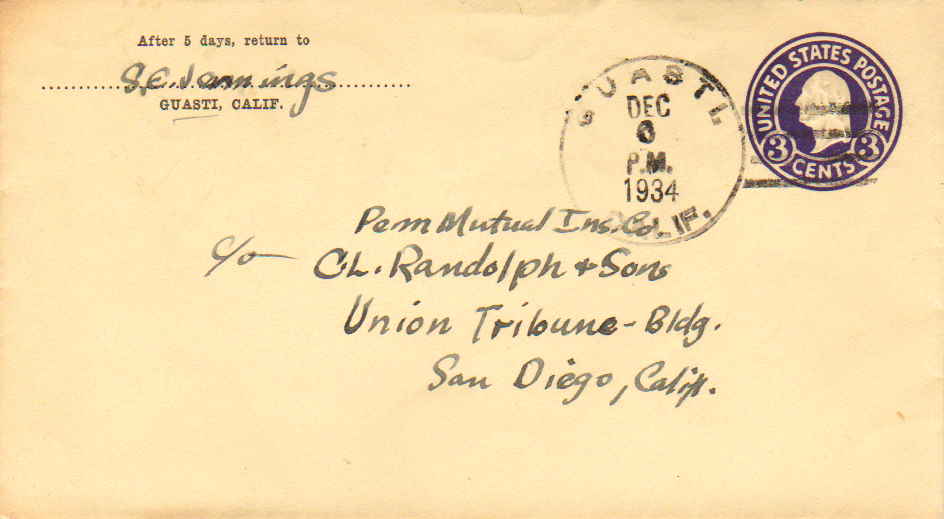 After 5 days, return to
S.E. Jennings
GUASTI, CALIF.
GUASTI,
DEC
6
P.M.
1934
CALIF.
UNITED STATES POSTAGE
3 CENTS 3
Penn Mutual Ins. Co.
c/o C.L. Randolph + Sons
Union Tribune-Bldg.
San Diego, Calif.